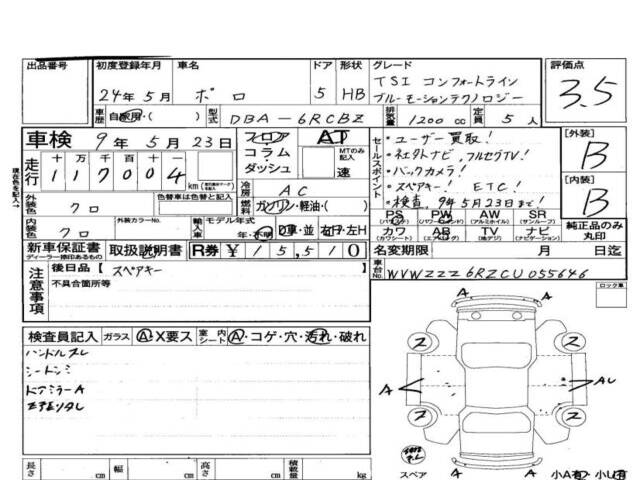 出品番号 初度登録年月 車名 ドア 形状 グレード 評価点
24年5月 ポロ 5 HB TSI コンフォートライン
ブルーモーションテクノロジー
3.5
車歴 自家用・( ) 型式 DBA-6RCBZ 排気量 1200cc 定員 5人
車検 9年5月23日 フロア AT
コラム・ダッシュ MTのみ記入 速
走行 十万千百十一
117004 km
冷房 AC
外装色 クロ 色替車は色替色 燃料 ガソリン・軽油・( )
内装色 クロ 外装カラーNo. 輸入車 モデル年式 年・不明 D車・並 右H・左H
セールスポイント
・ユーザー買取!
・ネェクトナビ,フルセグTV!
・バックカメラ!
・スペアキー! ETC!
・検査、9年5月23日まで!
[外装] B
[内装] B
PS (パワステ) PW (パワーウインド) AW (アルミホイル) SR (サンルーフ)
カワ (カワシート) AB (エアバッグ) TV (地デジ) ナビ (ナビゲーション)
純正品のみ丸印
新車保証書 ディーラー捺印あるもの 取扱説明書 R券 ¥15,510
名変期限 月 日迄
車台No. WVWZZZ6RZCU055646
注意事項 後日品 [スペアキー]
不具合箇所等
現在色を記入→
ロック車
検査員記入 ガラス A・X要ス 室内シート A・コゲ・穴・汚れ・破れ
ハンドルスレ
シートシミ
ドアミラーA
A A
2 2
A AU
2 2
スペア A A 小A有 小U有
長さ cm 幅 cm 高さ cm 積載量 kg